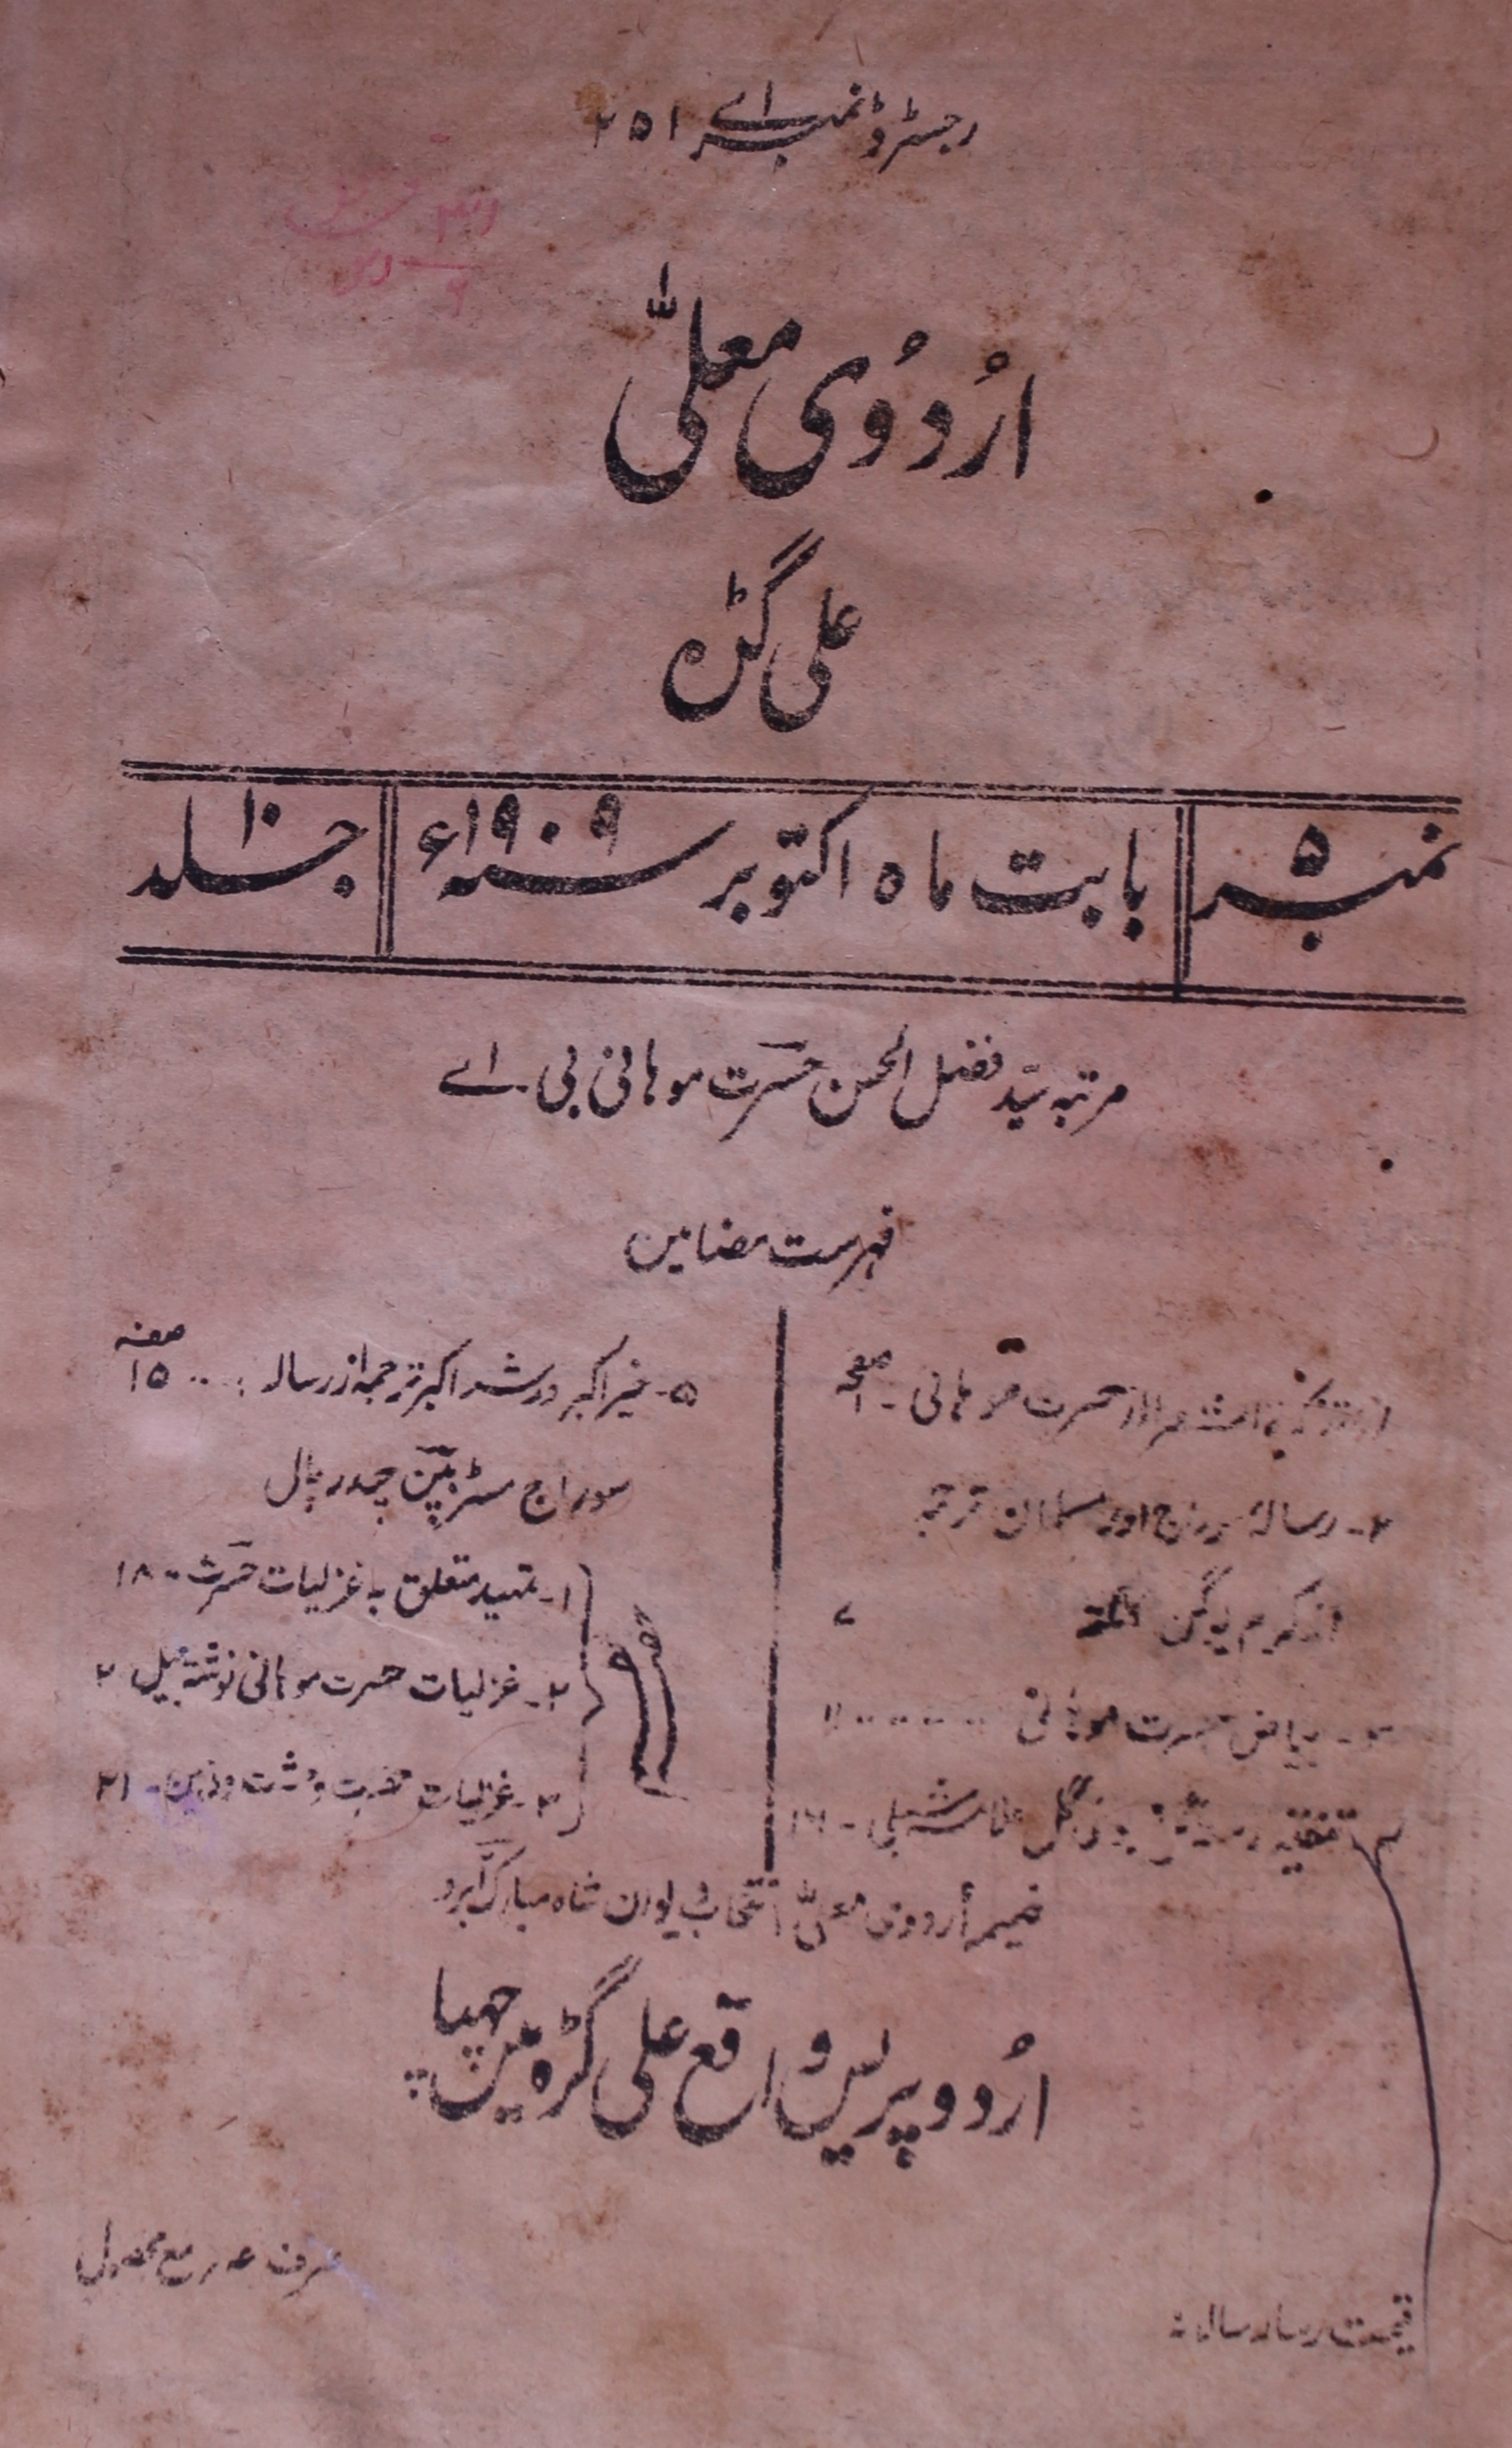 رجسٹرڈ نمبر اے ۲۵۱
اُردُوی معلّٰی
علی گڑہ
نمبر ۵
بابت ماہ اکتوبر سنہ ۱۹۰۹ء
جلد ۱۰
مرتبہ سیّد فضل الحسن حسرت موہانی بی۔ اے
فہرست مضامین
تذکرۃ الشعرا از حسرت موہانی۔ صفحہ ۱
۲۔ رسالۂ سوراج اور مسلمان ترجمہ
از کرم یوگن ۷
۳۔ بیاض حسرت موہانی ۱۱
۴۔ تنقید بوئے گل علامہ شبلی۔
صفحہ
۵۔ خیر اکبر و شر اکبر ترجمہ از رسالہ ۱۵
سوراج مسٹر بپن چندر پال
حصہ نظم
۱۔ تمہید متعلق بہ غزلیات حسرت ۱۸
۲۔ غزلیات حسرت موہانی نوشتہ جیل ۲
۳۔ غزلیات وحشت ۲۱
ضمیمہ أردوی معلّٰی انتخاب دیوان شاہ مبارک آبرو
اُردو پریس واقع علی گڑہ میں چھپا
قیمت رسالہ سالانہ
صرف مع محصول